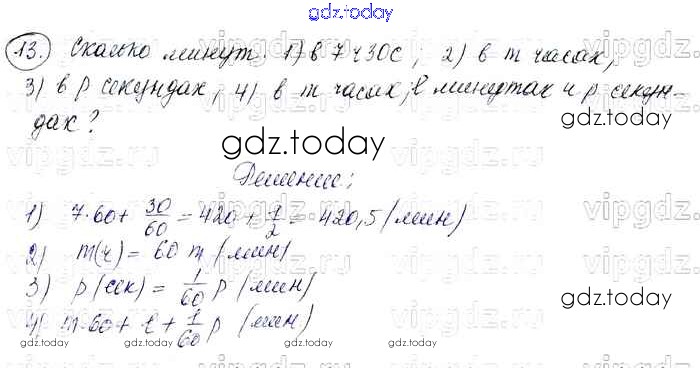 gdz.today
13. Сколько минут: 1) в 7 ч 30 с; 2) в m часах;
3) в p секундах; 4) в m часах, l минутах и p секун-
дах?
gdz.today
Решение:
1) 7·60 + 30/60 = 420 + 1/2 = 420,5 (мин)
2) m(ч) = 60 m (мин)
3) p (сек) = 1/60 p (мин)
4) m·60 + l + 1/60 p (мин)
gdz.today gdz.today gdz.today
vipgdz